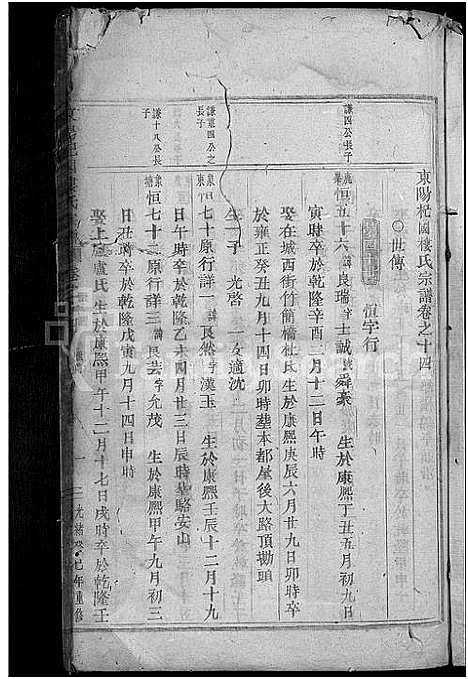 東陽杞國樓氏宗譜卷之十四
世傳
恒字行
謙四公長子
恒五十六 諱良瑞字士誠號舜豪 生於康熙丁丑五月初九日
寅時卒於乾隆辛酉二月十二日午時
娶在城西街竹簡橋杜氏生於康熙庚辰六月廿九日卯時卒
於雍正癸丑九月十四日卯時墓本都屋後大路頂墈頭
生一子 光啓 一女適沈
謙重四公之長子
恒七十原行詳一 諱良然字漢玉 生於康熙壬辰十二月十九
日午時卒於乾隆乙未四月廿三日辰時墓駱安山
謙十八公長子
恒七十二原行詳三 諱良芸字允茂 生於康熙甲午九月初三
日丑時卒於乾隆戊寅九月十四日申時
娶上 盧氏生於康熙甲午十二月十七日戌時卒於乾隆壬
光緒癸巳年重修